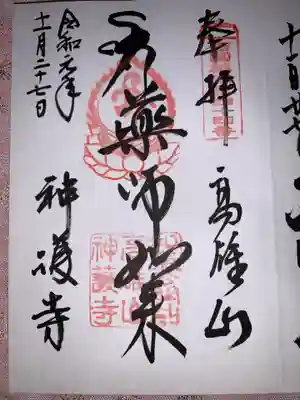 奉拝
高雄山
薬師如来
神護寺
令和元年
十一月二十七日
神護寺